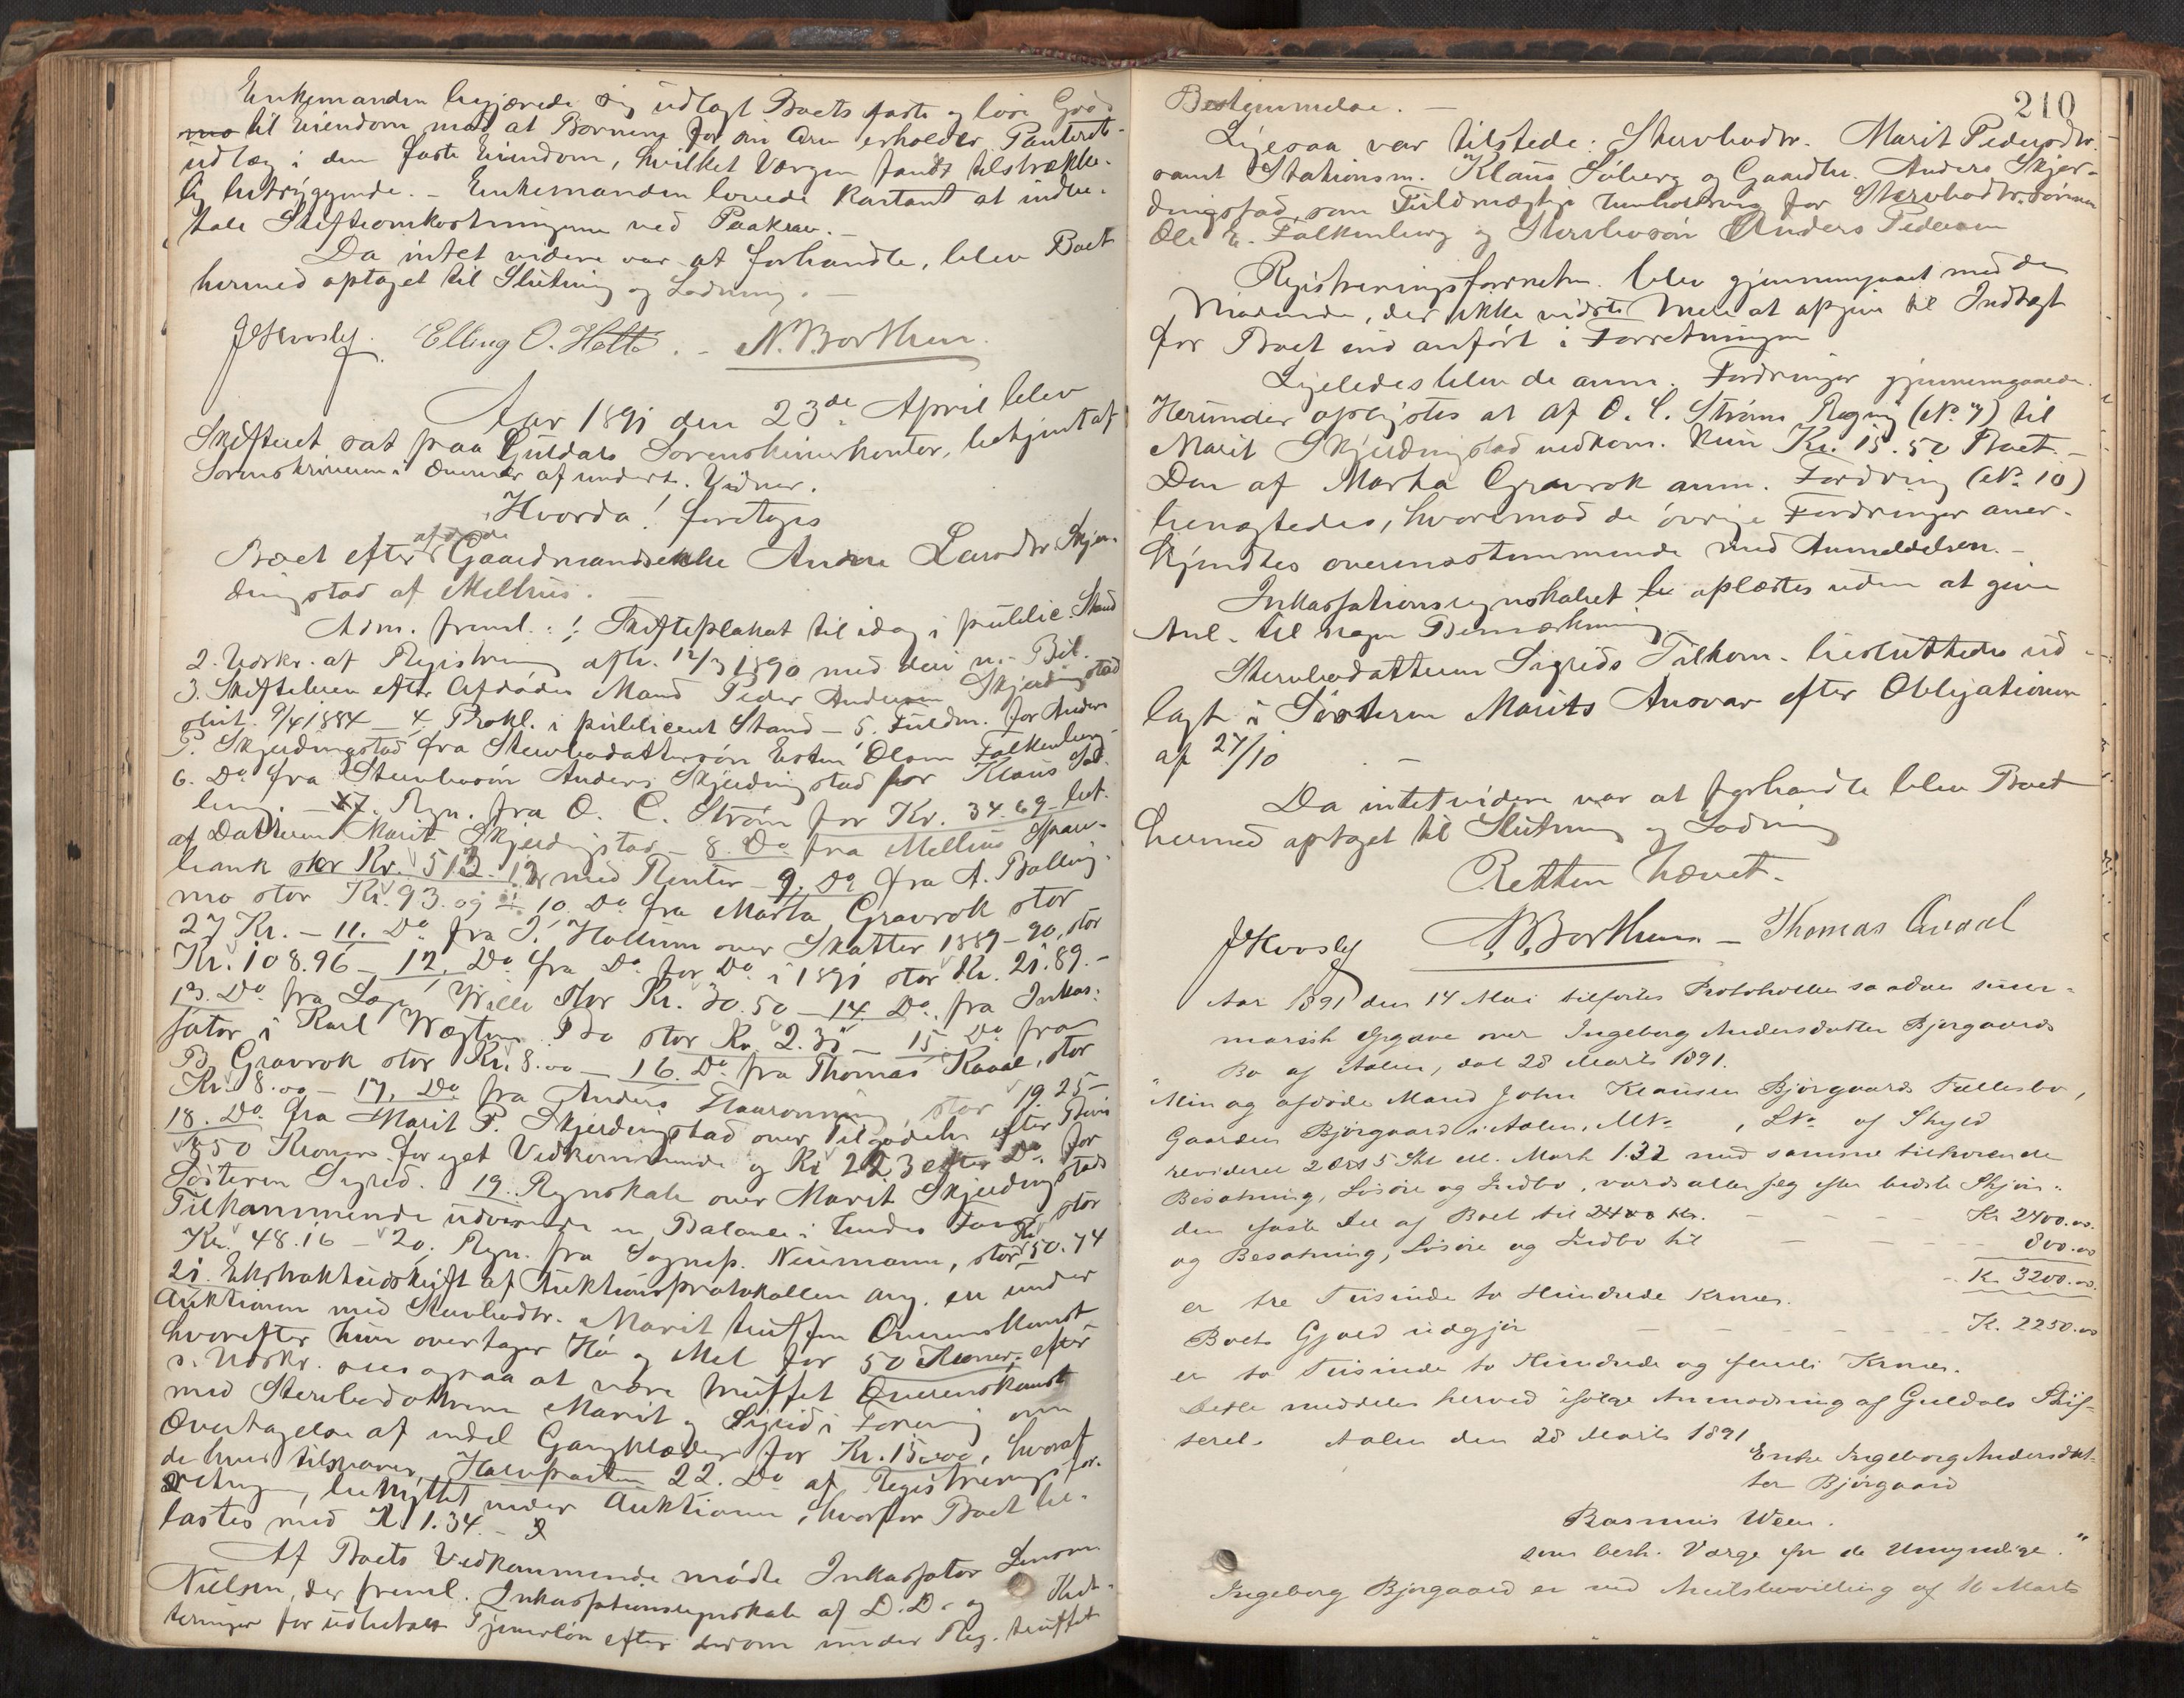 Enkemanden begjærede sig udlagt Boets faste og löse Gods
til Eiendom mod at Börnene for sin Arv erholder Panteret-
udlæg i den faste Eiendom, hvilket Værgen fandt tilstrække-
lig betryggende. - Enkemanden lovede kontant at indbe-
tale Skifteomkostningerne ved Paakrav. -
Da intet videre var at forhandle, blev Boet
hermed optaget til Slutning og Lodning. -
Elling O. Holte. - N. Borthen.
Aar 1891 den 23de April blev
Skifteret sat paa Guldals Sorenskriverkontor, betjent af
Sorenskriveren i Overvær af undert. Vidner.
Hvorda! foretoges
afdöde
Boet efter Gaardmandsenke Anne Larsdtr Skjer-
dingstad af Melhus.
Adm. freml.: 1. Skifteplakat til idag i public. Stand
2. Udskr. af Registrering afh. 12/3 1890 med deri n. Bil.
3. Skiftebrev efter Afdödes Mand Peder Andersen Skjerdingstad
slut. 9/4 1884 - 4. Prokl. i publiceret Stand - 5. Fuldm. for Anders
P. Skjerdingstad fra Stervbodattersön Esten Olsen Falkenberg
6. Do fra Stervbosön Anders Skjerdingstad for Klaus Sö-
berg. - 7. Regn. fra O. C. Ström for Kr. 34.69 bet.
af Datteren Marit Skjerdingstad - 8. Do fra Melhus Spare-
bank stor Kr. 512.12 med Renter - 9. Do fra A. Balling-
mo stor Kr. 93.09 - 10. Do fra Marta Gravrok stor
27 Kr. - 11. Do fra J. Hollum over Skatter 1889-90, stor
Kr. 108.96 - 12. Do fra Do for Do i 1891 stor Kr. 21.89. -
13. Do fra Læge Wille stor Kr. 30.50 - 14. Do fra Inkas-
sator i Karl stor Kr. 2.35 - 15. Do fra
B. Gravrok stor Kr. 8.00 - 16. Do fra Thomas Kvaal, stor
Kr. 8.00 - 17. Do fra Anders stor 19.25 -
18. Do fra Marit P. Skjerdingstad over Tilgodeh. efter Bevis
850 Kroner for eget Vedkommende og Kr. 223 efter Do. for
Sösteren Sigrid. 19. Regnskab over Marit Skjerdingstads
Tilkommende udvisende en Balance i hendes Favör stor
Kr. 48.16 - 20. Regn. fra Sognep. Neumann, stor Kr. 50.74
21. Ekstraktudskrift af Auktionsprotokollen ang. en under
Auktionen med Stervbodtr. Marit truffen Overenskomst
hvorefter hun overtager Hö og Mel for 50 Kroner, efter
s. Udskr. sees ogsaa at være truffet Overenskomst
med Stervbodöttrene Marit og Sigrid i Forening om
Overtagelse af endel Gangklæder for Kr. 15.00, hvoraf
de hver tilsvarer Halvparten 22. Do af Registreringsfor-
retningen, benyttet under Auktionen, hvorfor Boet be-
lastes med Kr. 1.34. -
Af Boets Vedkommende mödte Inkassator Lensm.
Nielsen, der freml. Inkassationsregnskab af D. D. og Kvit-
teringer for udbetalt Tjenerlön efter derom under Reg. truffet
210
Bestemmelse. -
Ligesaa var tilstede: Stervbodtr. Marit Pedersdtr.
samt Stationsm. Klaus Söberg og Gaardbr. Anders Skjer-
dingstad, som Fuldmægtige henholdsvis for Stervbodtr.sönnen
Ole E. Falkenberg og Stervbosön Anders Pedersen
Registreringsforretn. blev gjennemgaaet med de
Mödende, der ikke vidste mere at opgive til Indtægt
for Boet end anfört i Forretningen
Ligeledes blev de anm. Fordringer gjennemgaaede.
Herunder oplystes at af O. C. Ströms Regning (No. 7) til
Marit Skjerdingstad vedkom. kun Kr. 15.50 Boet. -
Den af Marta Gravrok anm. Fordring (No. 10)
benægtedes, hvorimod de övrige Fordringer aner-
kjendtes overensstemmende med Anmeldelsen. -
Inkassationsregnskabet oplæstes uden at give
Anl. til nogen Bemærkning
Stervbodatteren Sigrids Tilkom. besluttedes ud-
lagt i Sösteren Marits Ansvar efter Obligationen
af 27/10 -
Da intet videre var at forhandle blev Boet
hermed optaget til Slutning og Lodning
Retten hævet.
N. Borthen - Thomas Qvaal
Aar 1891 den 14 Mai tilförtes Protokollen saadan summ-
marisk Opgave over Ingeborg Andersdatter Björgaards
Bo af Aalen, dat 28 Marts 1891.
"Min og afdöde Mand John Klausen Björgaards Fællesbo,
Gaarden Björgaard i Aalen, MNo , LNo af Skyld
revideret 2 Ort 5 Skl. ell. Mark 1.32 med samme tilhörende
Besætning, Lösöre og Indbo, værdsætter jeg efter bedste Skjön:
den faste Del af Boet til 2400 Kr. - - - - Kr 2400.00.
og Besætning, Lösöre og Indbo til - - - 800.00
er tre Tusinde to Hundrede Kroner. - K. 3200.00.
Boets Gjæld udgjör - - - - K. 2250.00
er to Tusinde to Hundrede og femti Kroner.
Dette meddeles herved ifölge Anmodning af Guldals Skif-
teret. Aalen den 28 Marts 1891
Enke Ingeborg Andersdat-
ter Björgaard
Rasmus Ween.
som besk. Værge for de Umyndige."
Ingeborg Björgaard er ved Amtsbevilling af 16 Marts